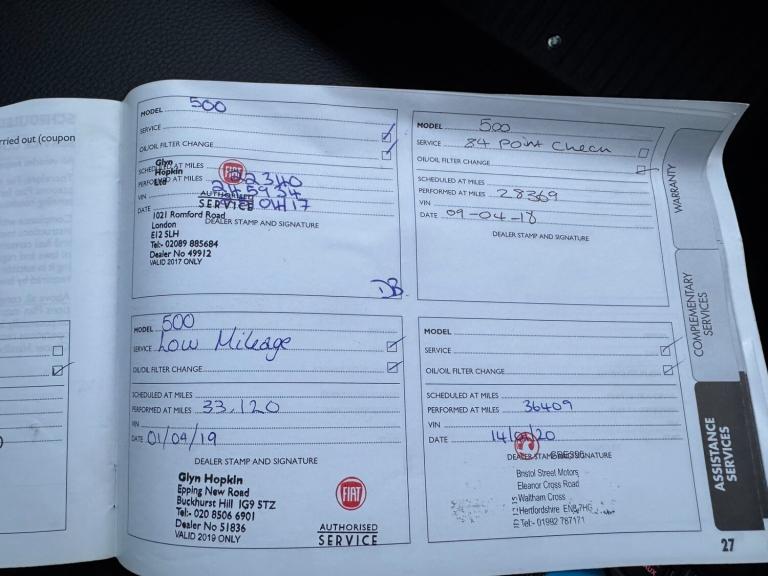 rried out (coupon
MODEL 500
SERVICE
OIL/OIL FILTER CHANGE
SCHEDULED AT MILES
PERFORMED AT MILES 22340
VIN
DATE
Glyn
Hopkin
Ltd
FIAT
AUTHORISED
SERVICE
1021 Romford Road
London
E12 5LH
Tel:- 02089 885684
Dealer No 49912
VALID 2017 ONLY
DEALER STAMP AND SIGNATURE
DB
MODEL 500
SERVICE 84 Point Check
OIL/OIL FILTER CHANGE
SCHEDULED AT MILES
PERFORMED AT MILES 28369
VIN
DATE 09-04-18
DEALER STAMP AND SIGNATURE
MODEL 500
SERVICE Low Mileage
OIL/OIL FILTER CHANGE
SCHEDULED AT MILES
PERFORMED AT MILES 33,120
VIN
DATE 01/04/19
DEALER STAMP AND SIGNATURE
Glyn Hopkin
Epping New Road
Buckhurst Hill IG9 5TZ
Tel:- 020 8506 6901
Dealer No 51836
VALID 2019 ONLY
FIAT
AUTHORISED
SERVICE
MODEL
SERVICE
OIL/OIL FILTER CHANGE
SCHEDULED AT MILES
PERFORMED AT MILES 36409
VIN
DATE
DEALER STAMP AND SIGNATURE
Bristol Street Motors
Eleanor Cross Road
Waltham Cross
Hertfordshire EN8 7HG
Tel:- 01992 787171
WARRANTY
COMPLEMENTARY
SERVICES
ASSISTANCE
SERVICES
27